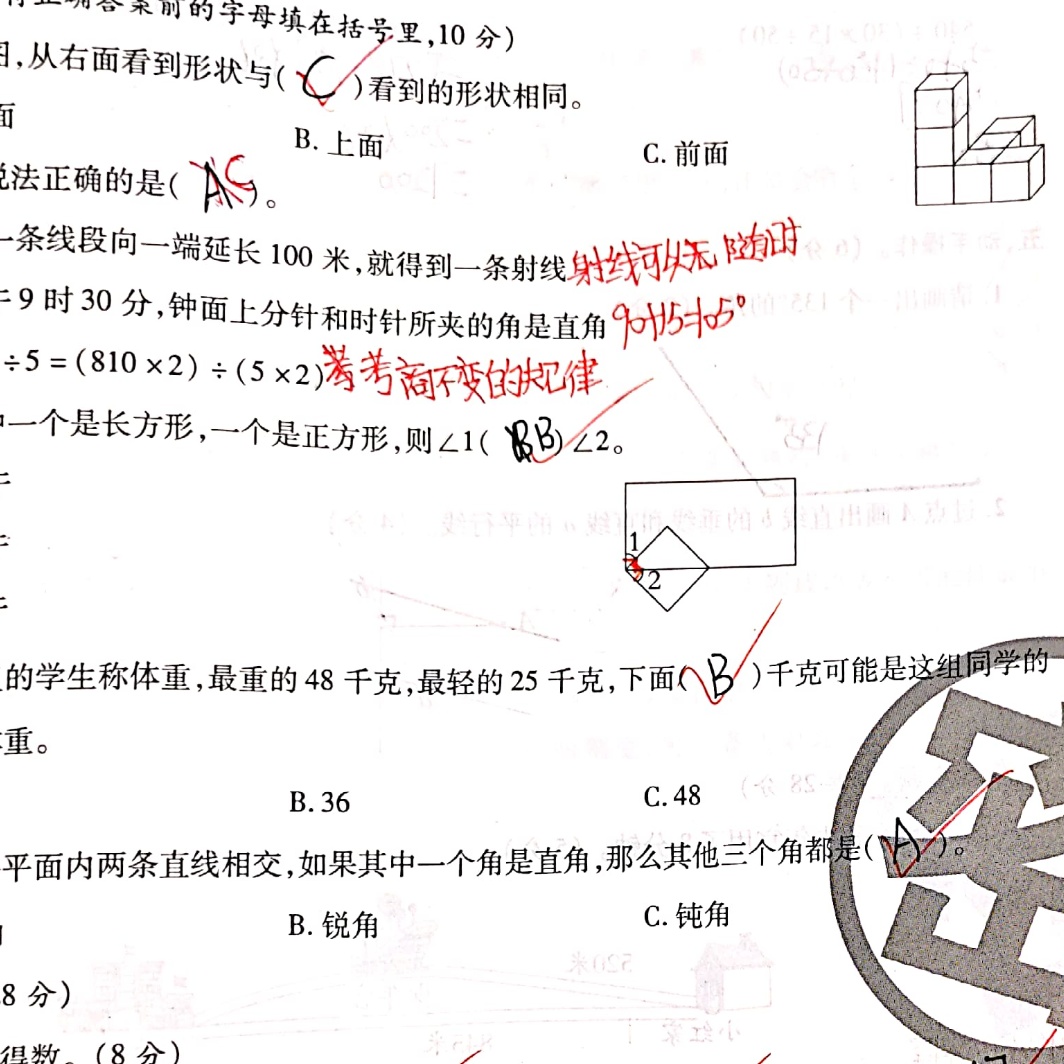 将正确答案前的字母填在括号里,10 分)
图,从右面看到形状与( C )看到的形状相同。
面
B. 上面
C. 前面
说法正确的是( A C )。
一条线段向一端延长 100 米,就得到一条射线 射线可以无
午 9 时 30 分,钟面上分针和时针所夹的角是直角 90+15=105°
÷5 = (810 ×2) ÷ (5 ×2) 考 商不变的规律
中一个是长方形,一个是正方形,则∠1( B B ) ∠2。
1
2
的学生称体重,最重的 48 千克,最轻的 25 千克,下面( B )千克可能是这组同学的
体重。
B. 36
C. 48
平面内两条直线相交,如果其中一个角是直角,那么其他三个角都是( A )。
B. 锐角
C. 钝角
8 分)
得数。(8 分)